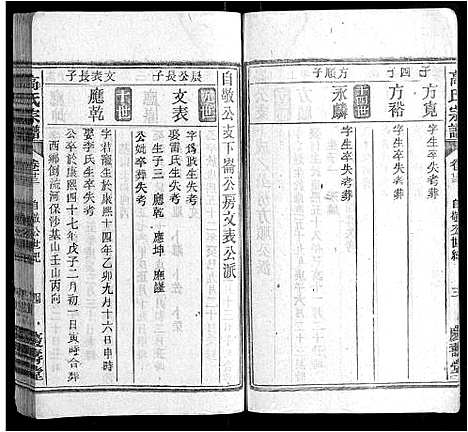 高氏宗譜
卷三
自敬公世紀
三
慶壽堂
子四子
方寬
字生卒失考葬
方裕
字生卒失考葬
方順子
十四世
永麟
字生卒失考葬
自敬公支下崙公房文表公派
晟公長子
九世
文表
字爲政生失考
娶雷氏生失考
生子三 應乾 應坤 應謹
公妣卒葬失考
文表長子
十世
應乾
字君龍生於康熙十四年乙卯九月十六日申時
娶李氏生失考
公卒於康熙四十七年戊子二月初一日寅時合葬
西鄉倒流河保沙基山壬山丙向
高氏宗譜
自敬公世紀
四
慶壽堂